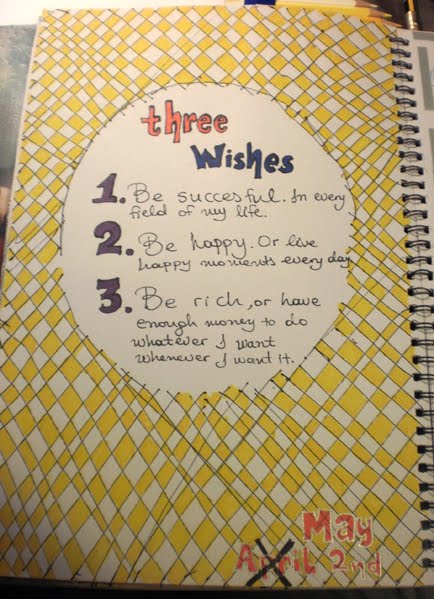 three
Wishes
1. Be succesful. In every
field of my life.
2. Be happy. Or live
happy moments every day
3. Be rich, or have
enough money to do
whatever I want
whenever I want it.
May
April 2nd